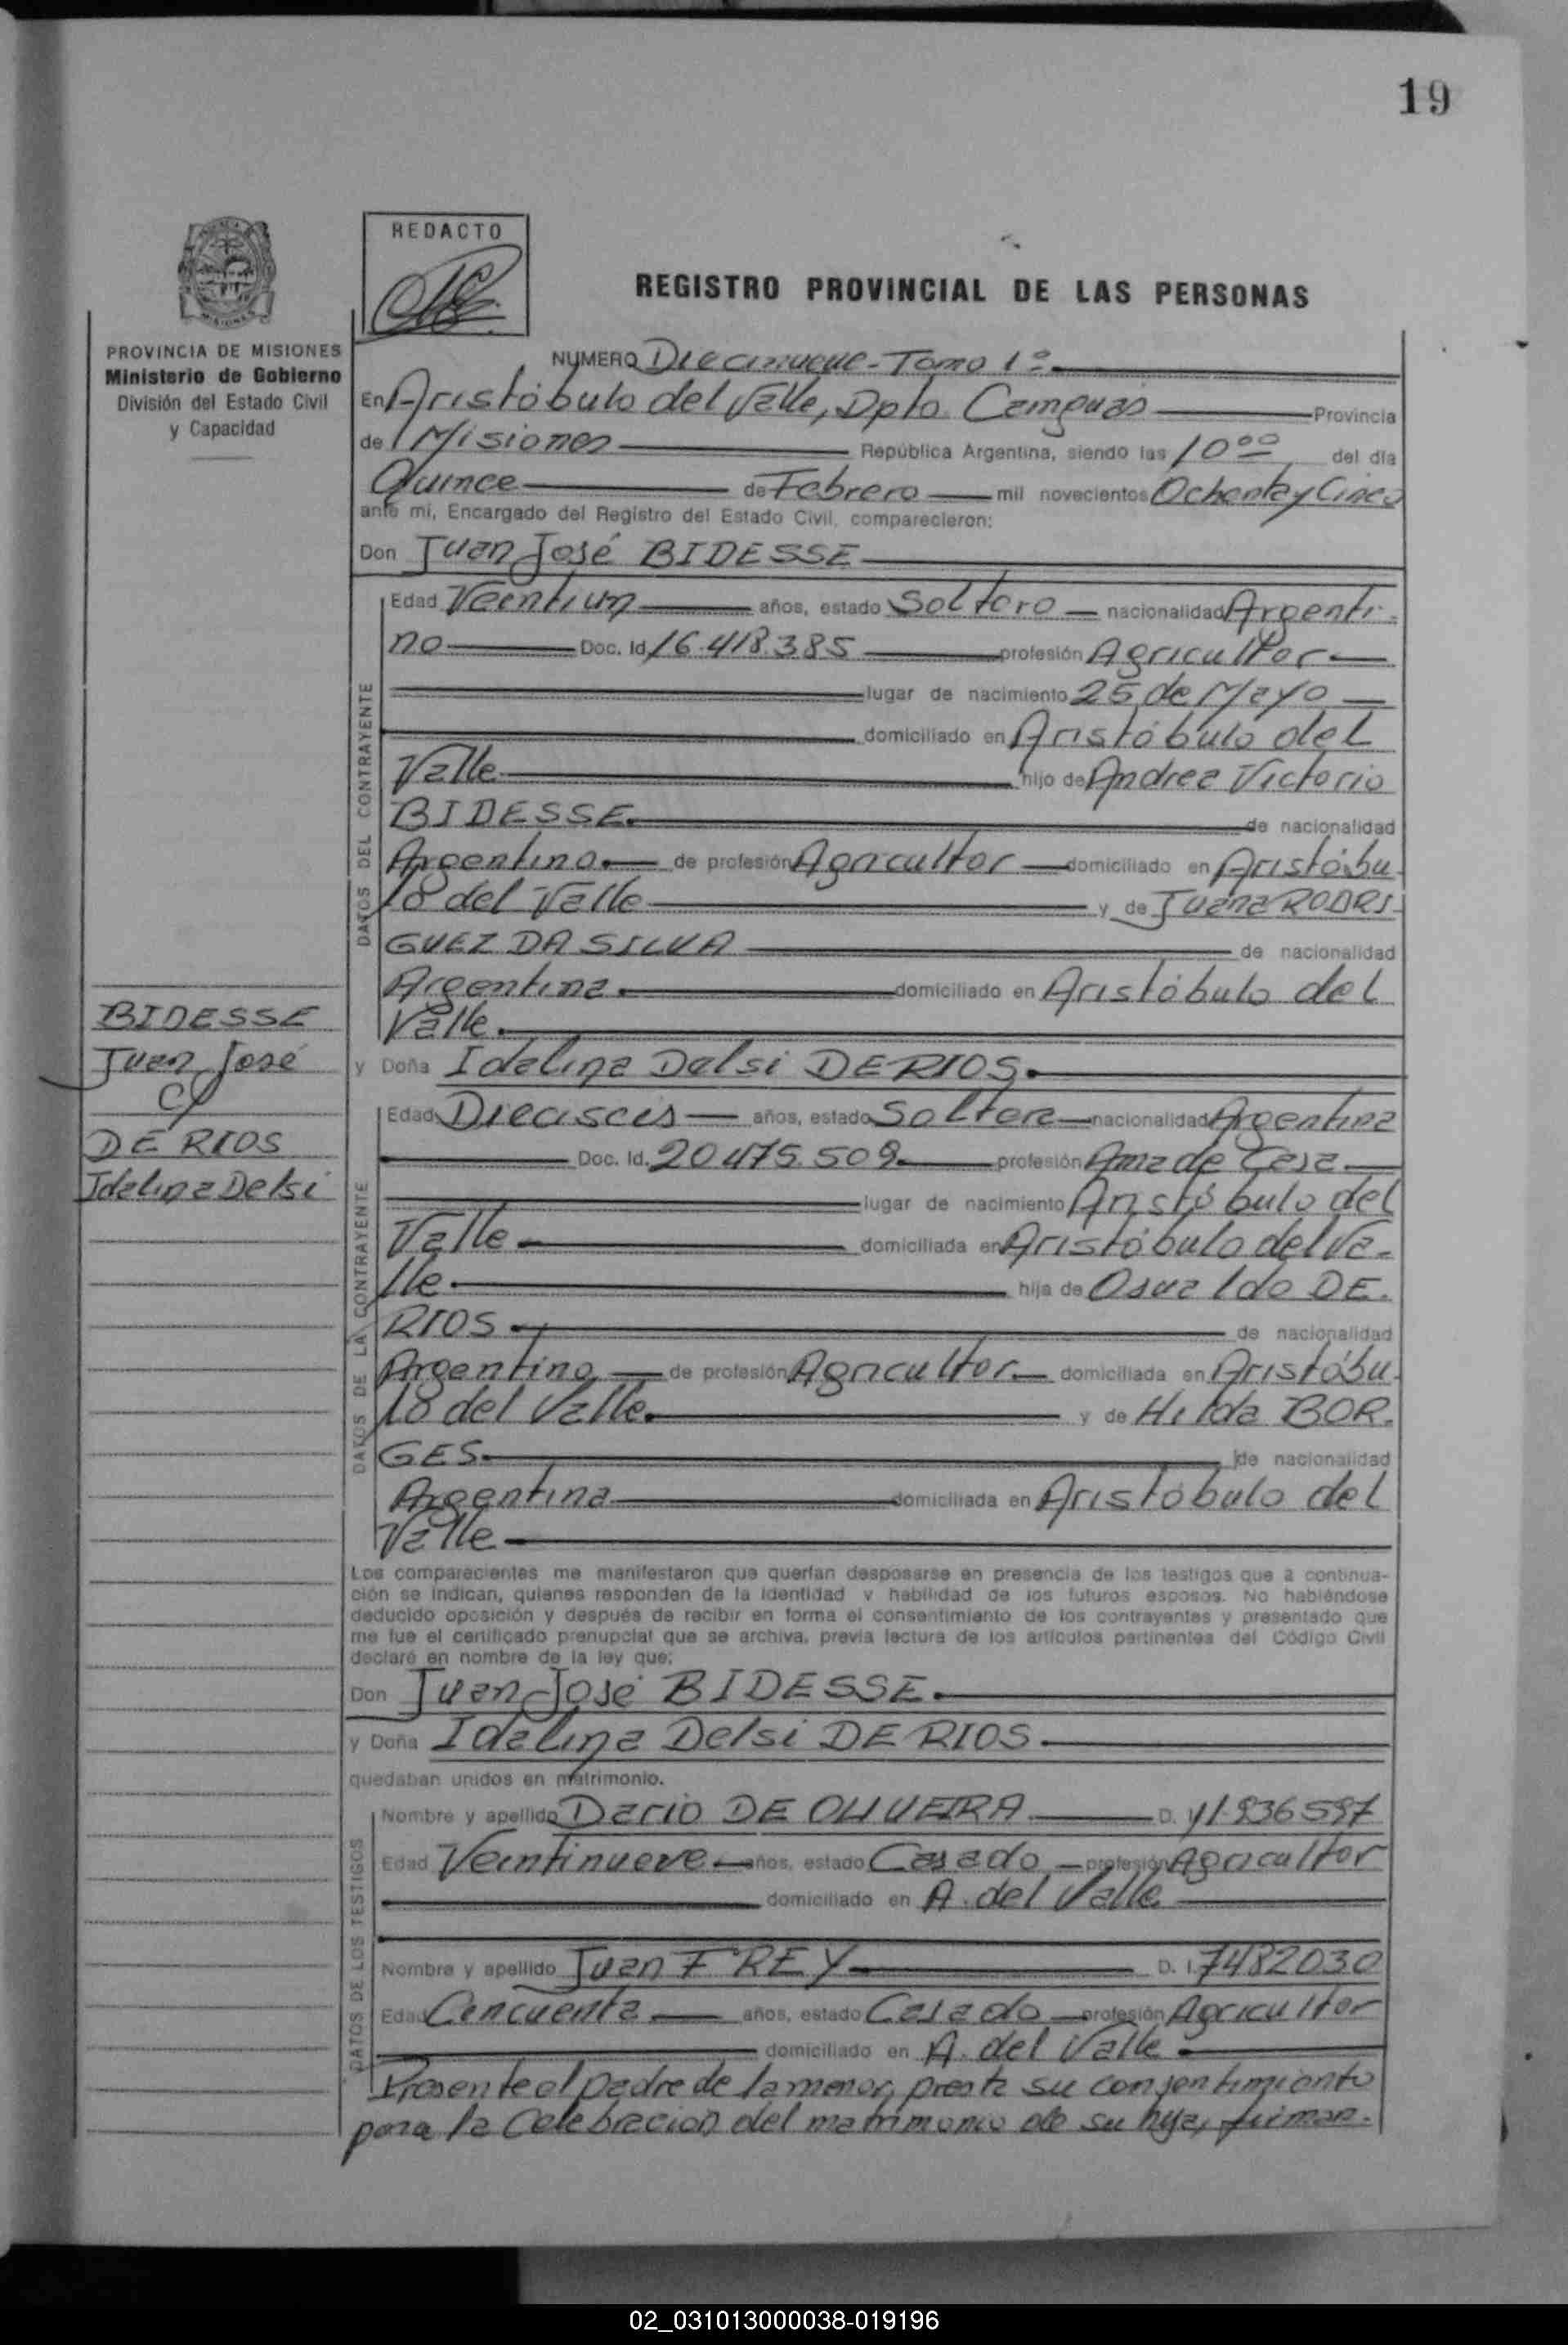 19
REDACTO
REGISTRO PROVINCIAL DE LAS PERSONAS
MISIONES
PROVINCIA DE MISIONES
Ministerio de Gobierno
División del Estado Civil
y Capacidad
NUMERO Diecinueve - Tomo 1º
En Aristóbulo del Valle, Dpto Cainguás Provincia
de Misiones República Argentina, siendo las 10 00 del día
Quince de Febrero mil novecientos Ochenta y Cinco
ante mi, Encargado del Registro del Estado Civil, comparecieron:
Don Juan José BIDESSE
DATOS DEL CONTRAYENTE
Edad Veintiun años, estado Soltero nacionalidad Argenti-
no Doc. Id. 16.418.385 profesión Agricultor
lugar de nacimiento 25 de Mayo
domiciliado en Aristóbulo del
Valle hijo de Andrea Victorio
BIDESSE. de nacionalidad
Argentino. de profesión Agricultor domiciliado en Aristóbu-
lo del Valle y de Juana RODRI-
GUEZ DA SILVA de nacionalidad
Argentina. domiciliado en Aristóbulo del
Valle.
BIDESSE
Juan José
c/
DE RIOS
Idelina Delsi
y Doña Idelina Delsi DE RIOS.
DATOS DE LA CONTRAYENTE
Edad Dieciseis años, estado Soltera nacionalidad Argentina
Doc. Id. 20.475.509 profesión Ama de Casa
lugar de nacimiento Aristóbulo del
Valle domiciliada en Aristóbulo del Va-
lle. hija de Osvaldo DE.
RIOS. de nacionalidad
Argentino de profesión Agricultor domiciliada en Aristóbu-
lo del Valle. y de Hilda BOR.
GES. de nacionalidad
Argentina domiciliada en Aristóbulo del
Valle
Los comparecientes me manifestaron que querían desposarse en presencia de los testigos que a continua-
ción se indican, quienes responden de la identidad y habilidad de los futuros esposos. No habiéndose
deducido oposición y después de recibir en forma el consentimiento de los contrayentes y presentado que
me fue el certificado prenupcial que se archiva, previa lectura de los artículos pertinentes del Código Civil
declaré en nombre de la ley que:
Don Juan José BIDESSE.
y Doña Idelina Delsi DE RIOS.
quedaban unidos en matrimonio.
DATOS DE LOS TESTIGOS
Nombre y apellido Dario DE OLIVEIRA D. I. 11.936597
Edad Veintinueve años, estado Casado profesión Agricultor
domiciliado en A. del Valle
Nombre y apellido Juan FREY D. I. 7482030
Edad Cincuenta años, estado Casado profesión Agricultor
domiciliado en A. del Valle
Presente el padre de la menor, presta su consentimiento
para la Celebración del matrimonio de su hija, firman.
02_031013000038-019196